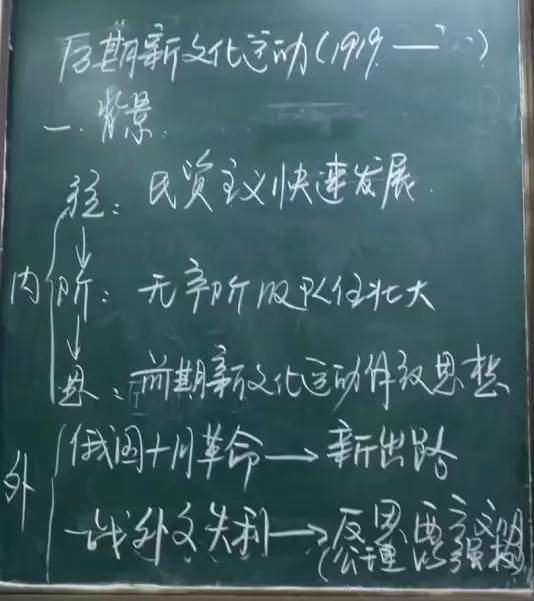 后期新文化运动(1919.—      )
一.背景
经: 民资主义快速发展.
↓
内 阶: 无产阶级队伍壮大
↓
思: 前期新文化运动解放思想
外 俄国十月革命→新出路
一战外交失利→反思西方文明
(公理 强权)